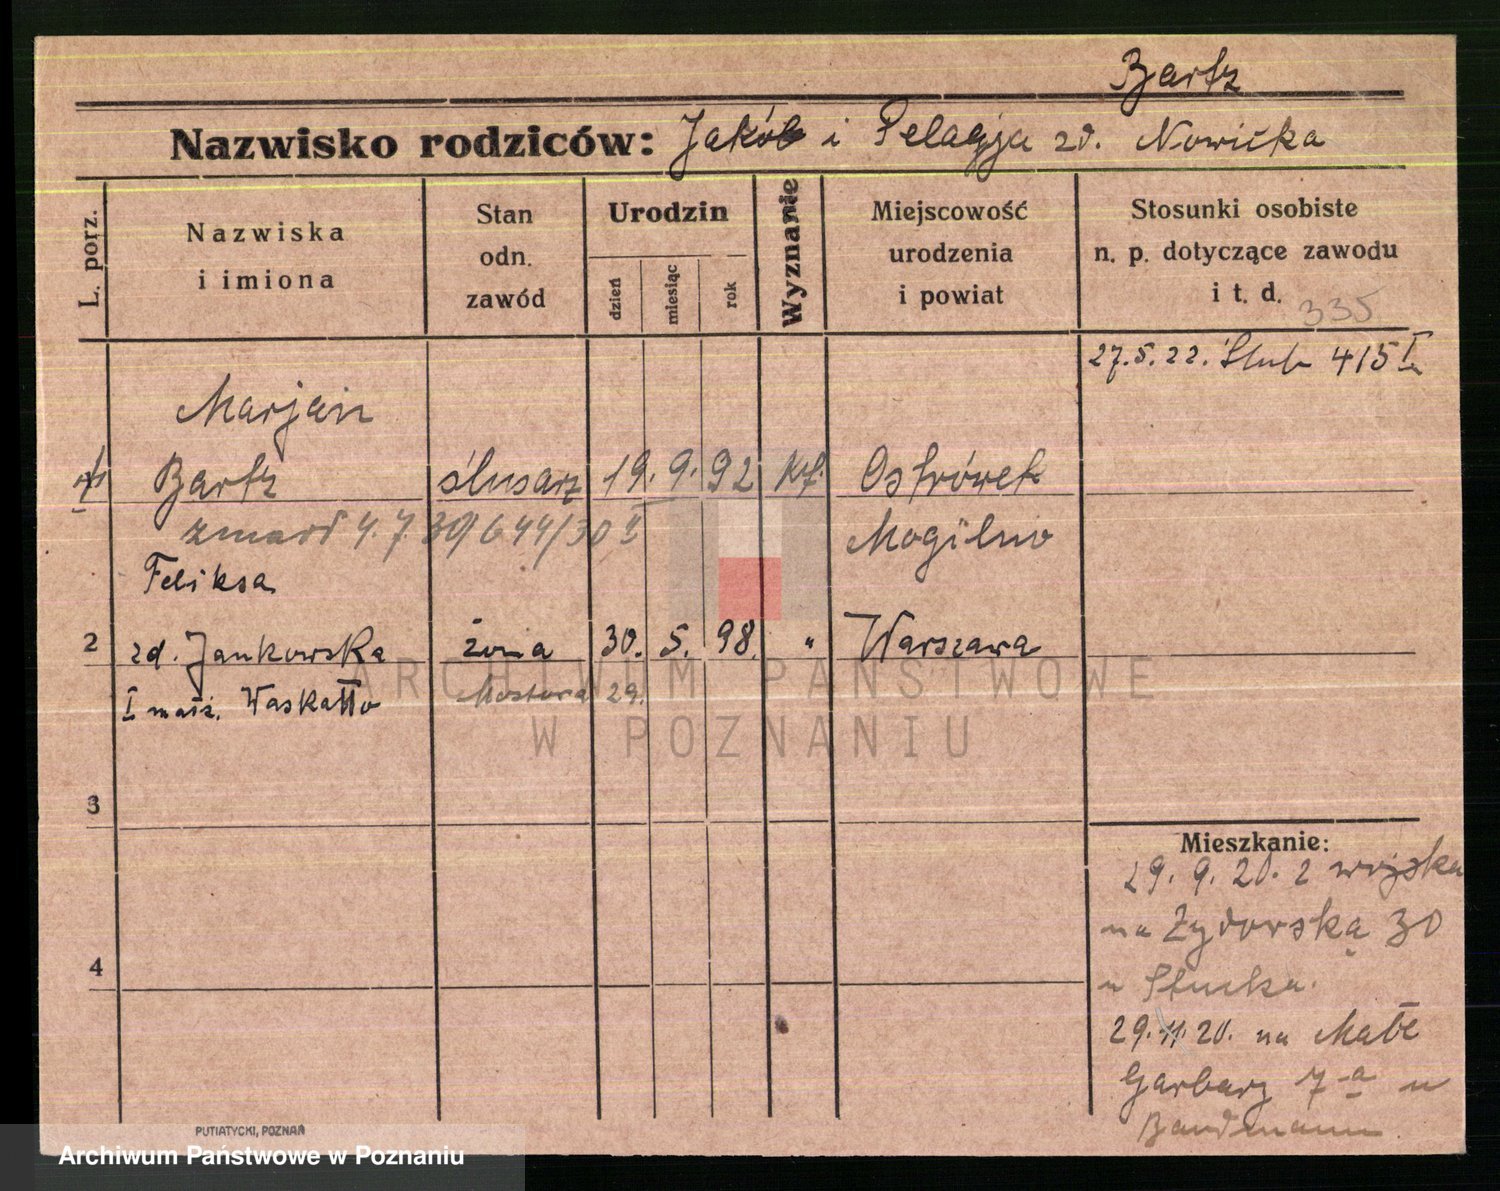 Bartz
Nazwisko rodziców: Jakób i Pelagja zd. Nowicka
L. porz.
Nazwiska
i imiona
Stan
odn.
zawód
Urodzin
dzień
miesiąc
rok
Wyznanie
Miejscowość
urodzenia
i powiat
Stosunki osobiste
n. p. dotyczące zawodu
i t. d.
335
27.5.22. Ślub 415 I
Marjan
1 Bartz ślusarz 19. 9. 92 kt. Ostrówek
zmarł 4.7.30/644/30 II Mogilno
Feliksa
2 zd. Jankowska żona 30. 5. 98. " Warszawa
I małż. Waskatło 29.
3
4
Mieszkanie:
29. 9. 20. z wojska
na Żydowską 30
u Stucka.
29.11.20. na Małe
Garbary 7-a u
Bandmann
PUTIATYCKI, POZNAŃ
ARCHIWUM PAŃSTWOWE
W POZNANIU
Archiwum Państwowe w Poznaniu